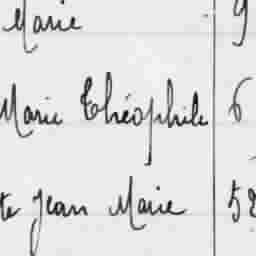 Marie 9
Marie Théophile 6
te Jean Marie 58